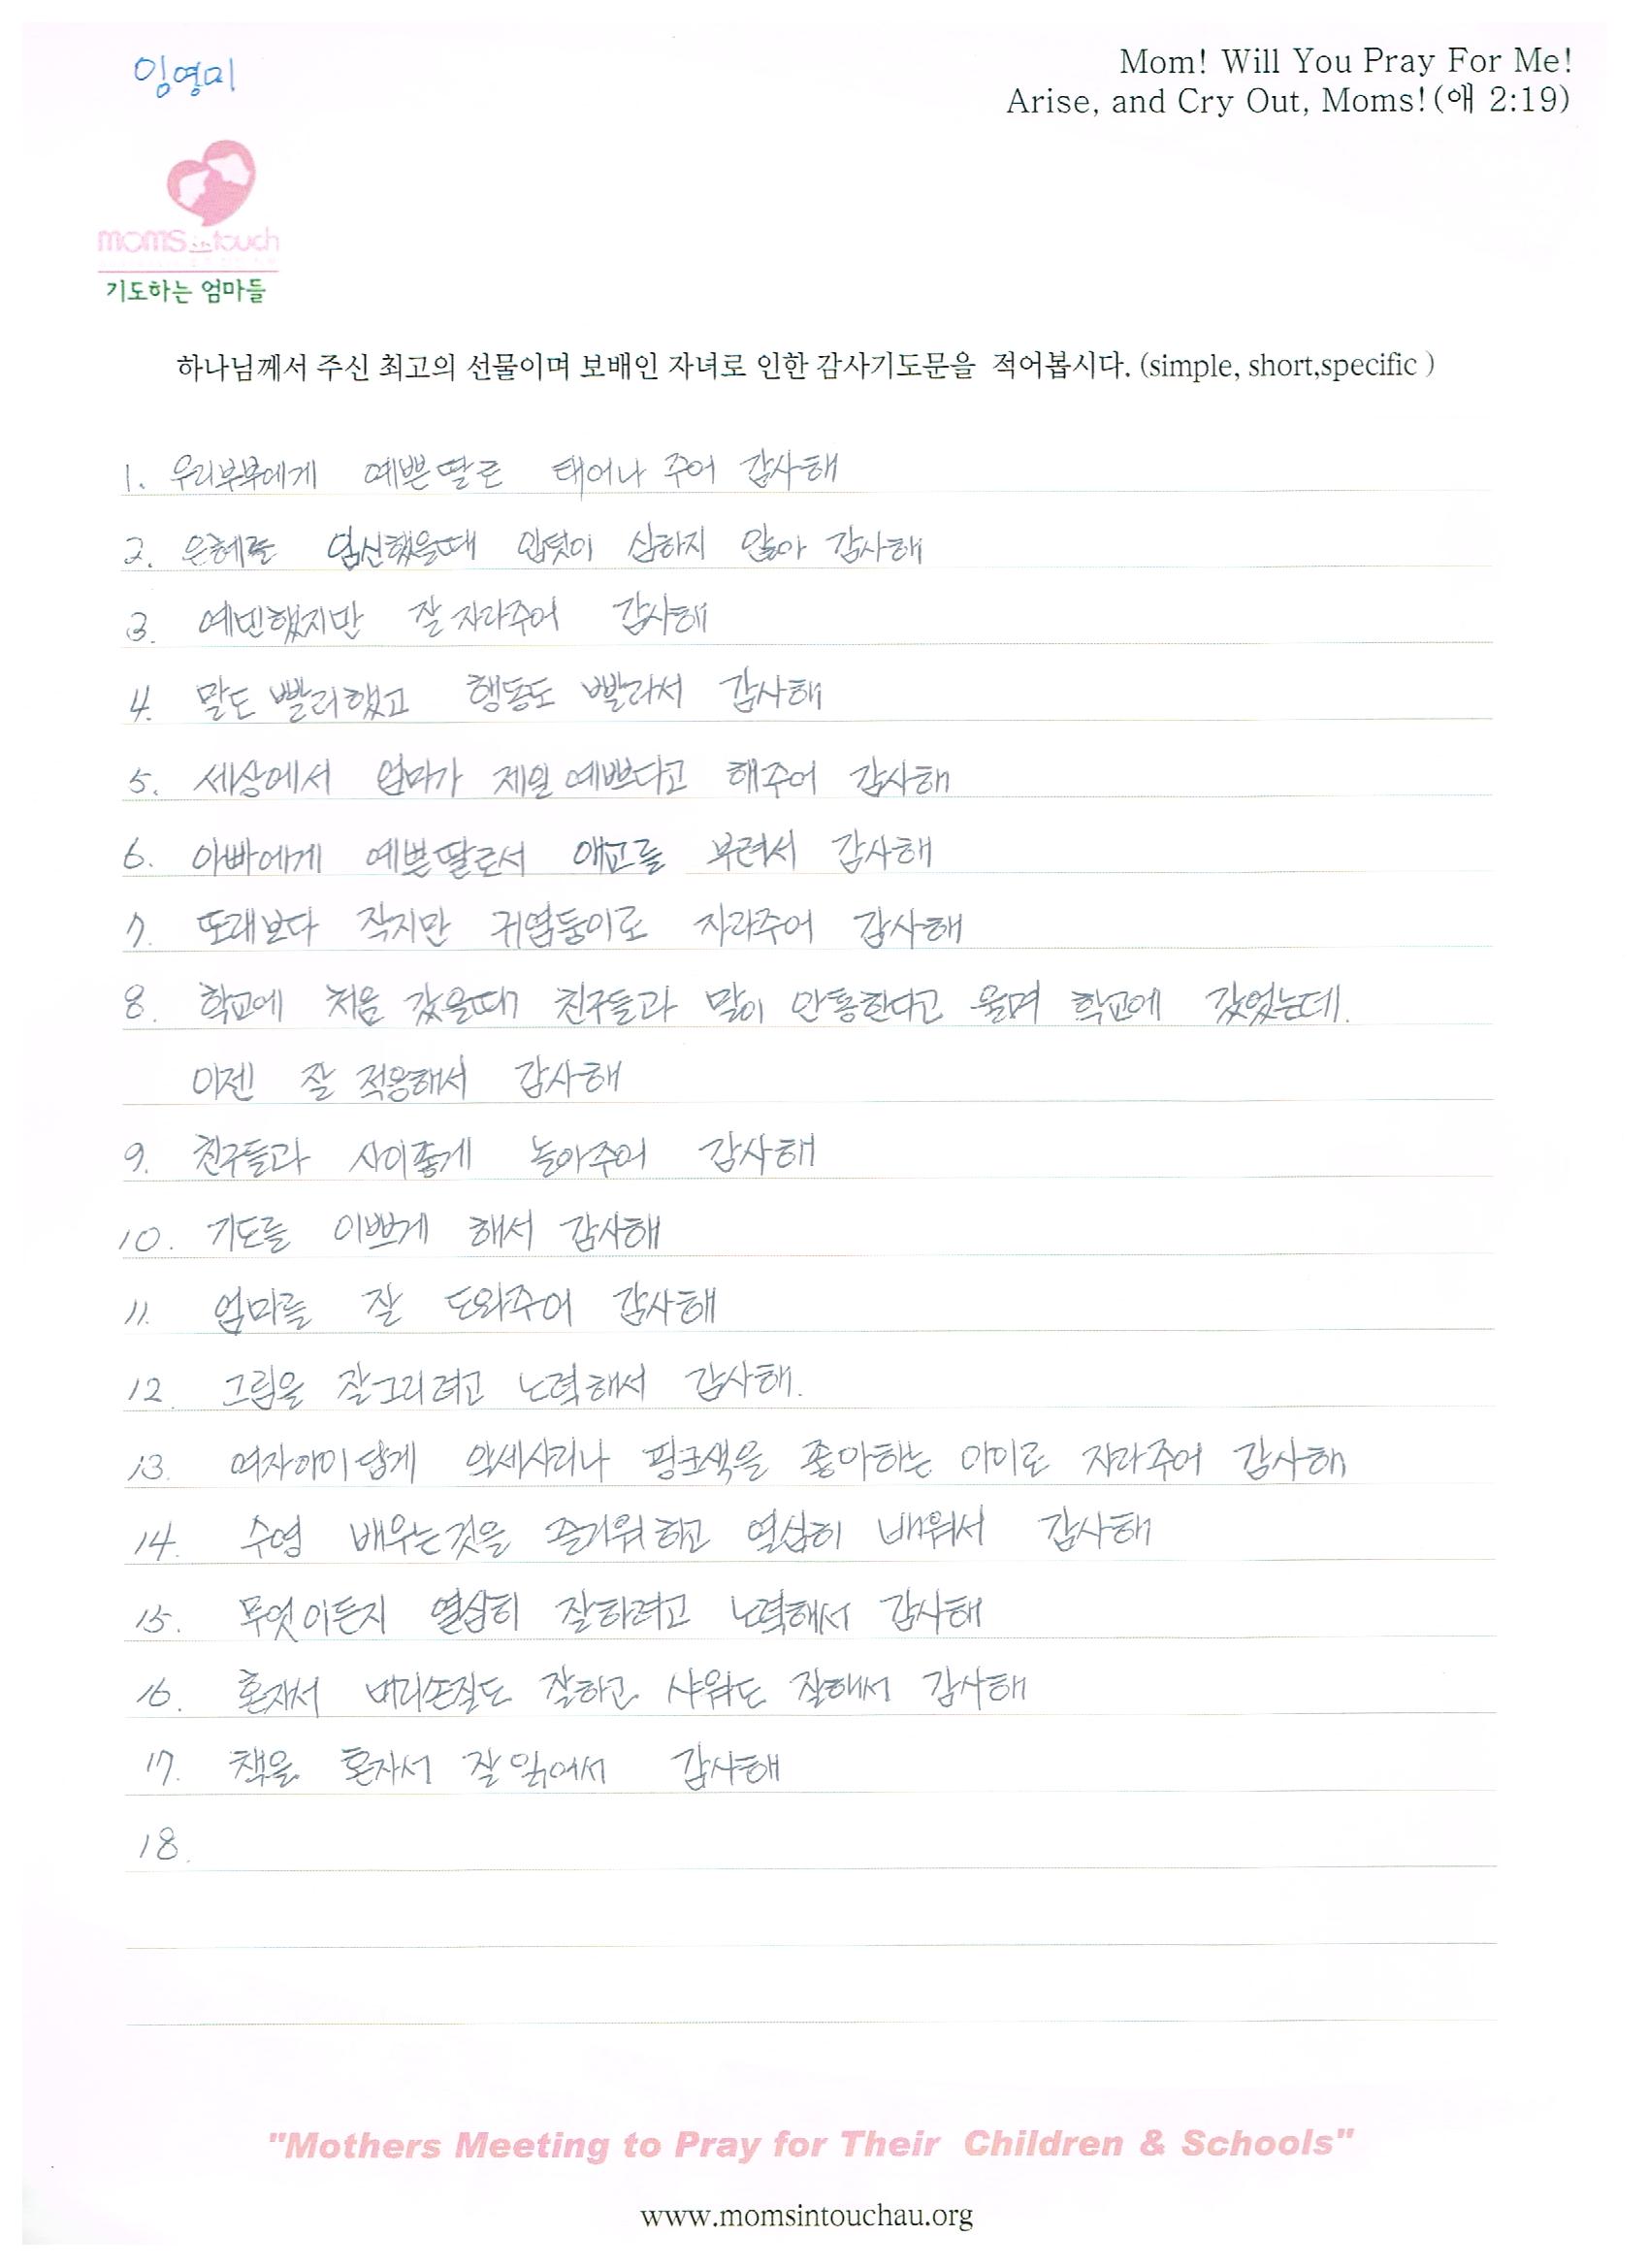 임영미
Mom! Will You Pray For Me!
Arise, and Cry Out, Moms!(애 2:19)
moms in touch
기도하는 엄마들
하나님께서 주신 최고의 선물이며 보배인 자녀로 인한 감사기도문을 적어봅시다. (simple, short,specific )
1. 우리부부에게 예쁜딸로 태어나 주어 감사해
2. 은혜를 임신했을때 입덧이 심하지 않아 감사해
3. 예민했지만 잘 자라주어 감사해
4. 말도 빨리했고 행동도 빨라서 감사해
5. 세상에서 엄마가 제일 예쁘다고 해주어 감사해
6. 아빠에게 예쁜딸로서 애교를 부려서 감사해
7. 또래보다 작지만 귀염둥이로 자라주어 감사해
8. 학교에 처음 갔을때 친구들과 말이 안통한다고 울며 학교에 갔었는데.
이젠 잘 적응해서 감사해
9. 친구들과 사이좋게 놀아주어 감사해
10. 기도를 이쁘게 해서 감사해
11. 엄마를 잘 도와주어 감사해
12. 그림을 잘그리려고 노력해서 감사해.
13. 여자아이답게 악세사리나 핑크색을 좋아하는 아이로 자라주어 감사해
14. 수영 배우는것을 즐거워하고 열심히 배워서 감사해
15. 무엇이든지 열심히 잘하려고 노력해서 감사해
16. 혼자서 머리손질도 잘하고 샤워도 잘해서 감사해
17. 책을 혼자서 잘 읽어서 감사해
18.
"Mothers Meeting to Pray for Their Children & Schools"
www.momsintouchau.org